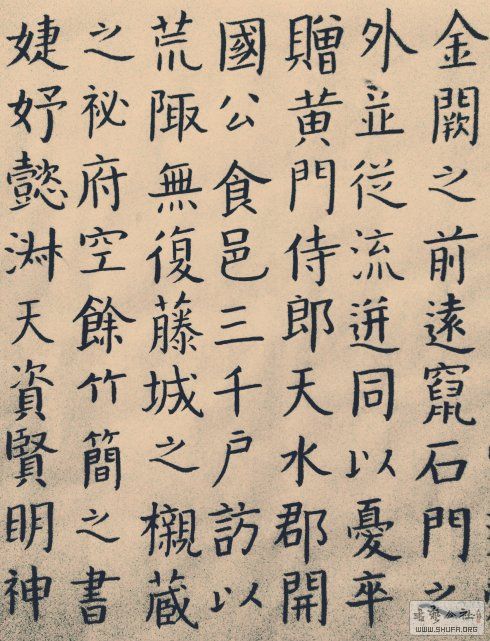 金闕之前遠竄石門之
外並從流迸同以憂卒
贈黄門侍郎天水郡開
國公食邑三千户訪以
荒陬無復藤城之櫬蔵
之祕府空餘竹簡之書
婕妤懿淑天資賢明神
WWW.SHUFA.ORG